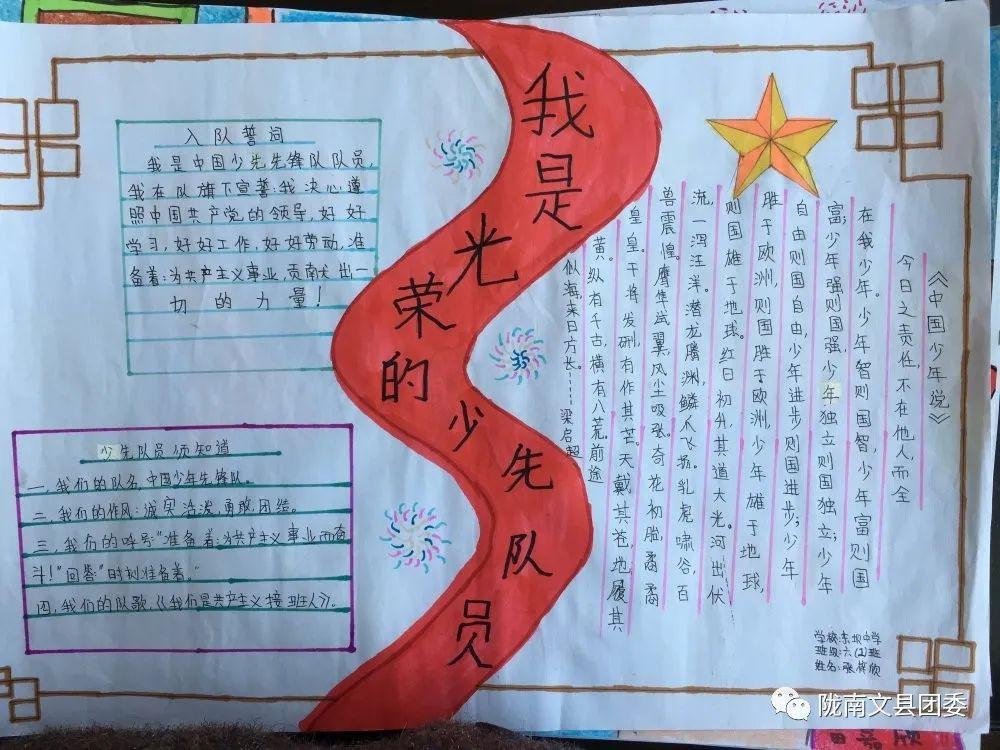 我是光荣的少先队员
入队誓词
我是中国少先先锋队队员,
我在队旗下宣誓:我决心遵
照中国共产党的领导,好好
学习,好好工作,好好劳动,准
备着:为共产主义事业,贡献出一
切的力量!
少先队员须知道
一,我们的队名,中国少年先锋队。
二,我们的作风:诚实活泼,勇敢,团结。
三,我们的呼号"准备着:为共产主义事业而奋
斗!"回答"时刻准备着。"
四,我们的队歌,《我们是共产主义接班人》。
《中国少年说》
今日之责任,不在他人,而全
在我少年。少年智则国智,少年富则国
富;少年强则国强,少年独立则国独立;少年
自由则国自由,少年进步则国进步;少年
胜于欧洲,则国胜于欧洲,少年雄于地球,
则国雄于地球。红日初升,其道大光。河出伏
流,一泻汪洋。潜龙腾渊,鳞爪飞扬。乳虎啸谷,百
兽震惶。鹰隼试翼,风尘吸张。奇花初胎,矞矞
皇皇。干将发硎,有作其芒。天戴其苍,地履其
黄。纵有千古,横有八荒。前途
似海,来日方长……梁启超
学校:东坝中学
班级:六(2)班
姓名:张
陇南文县团委